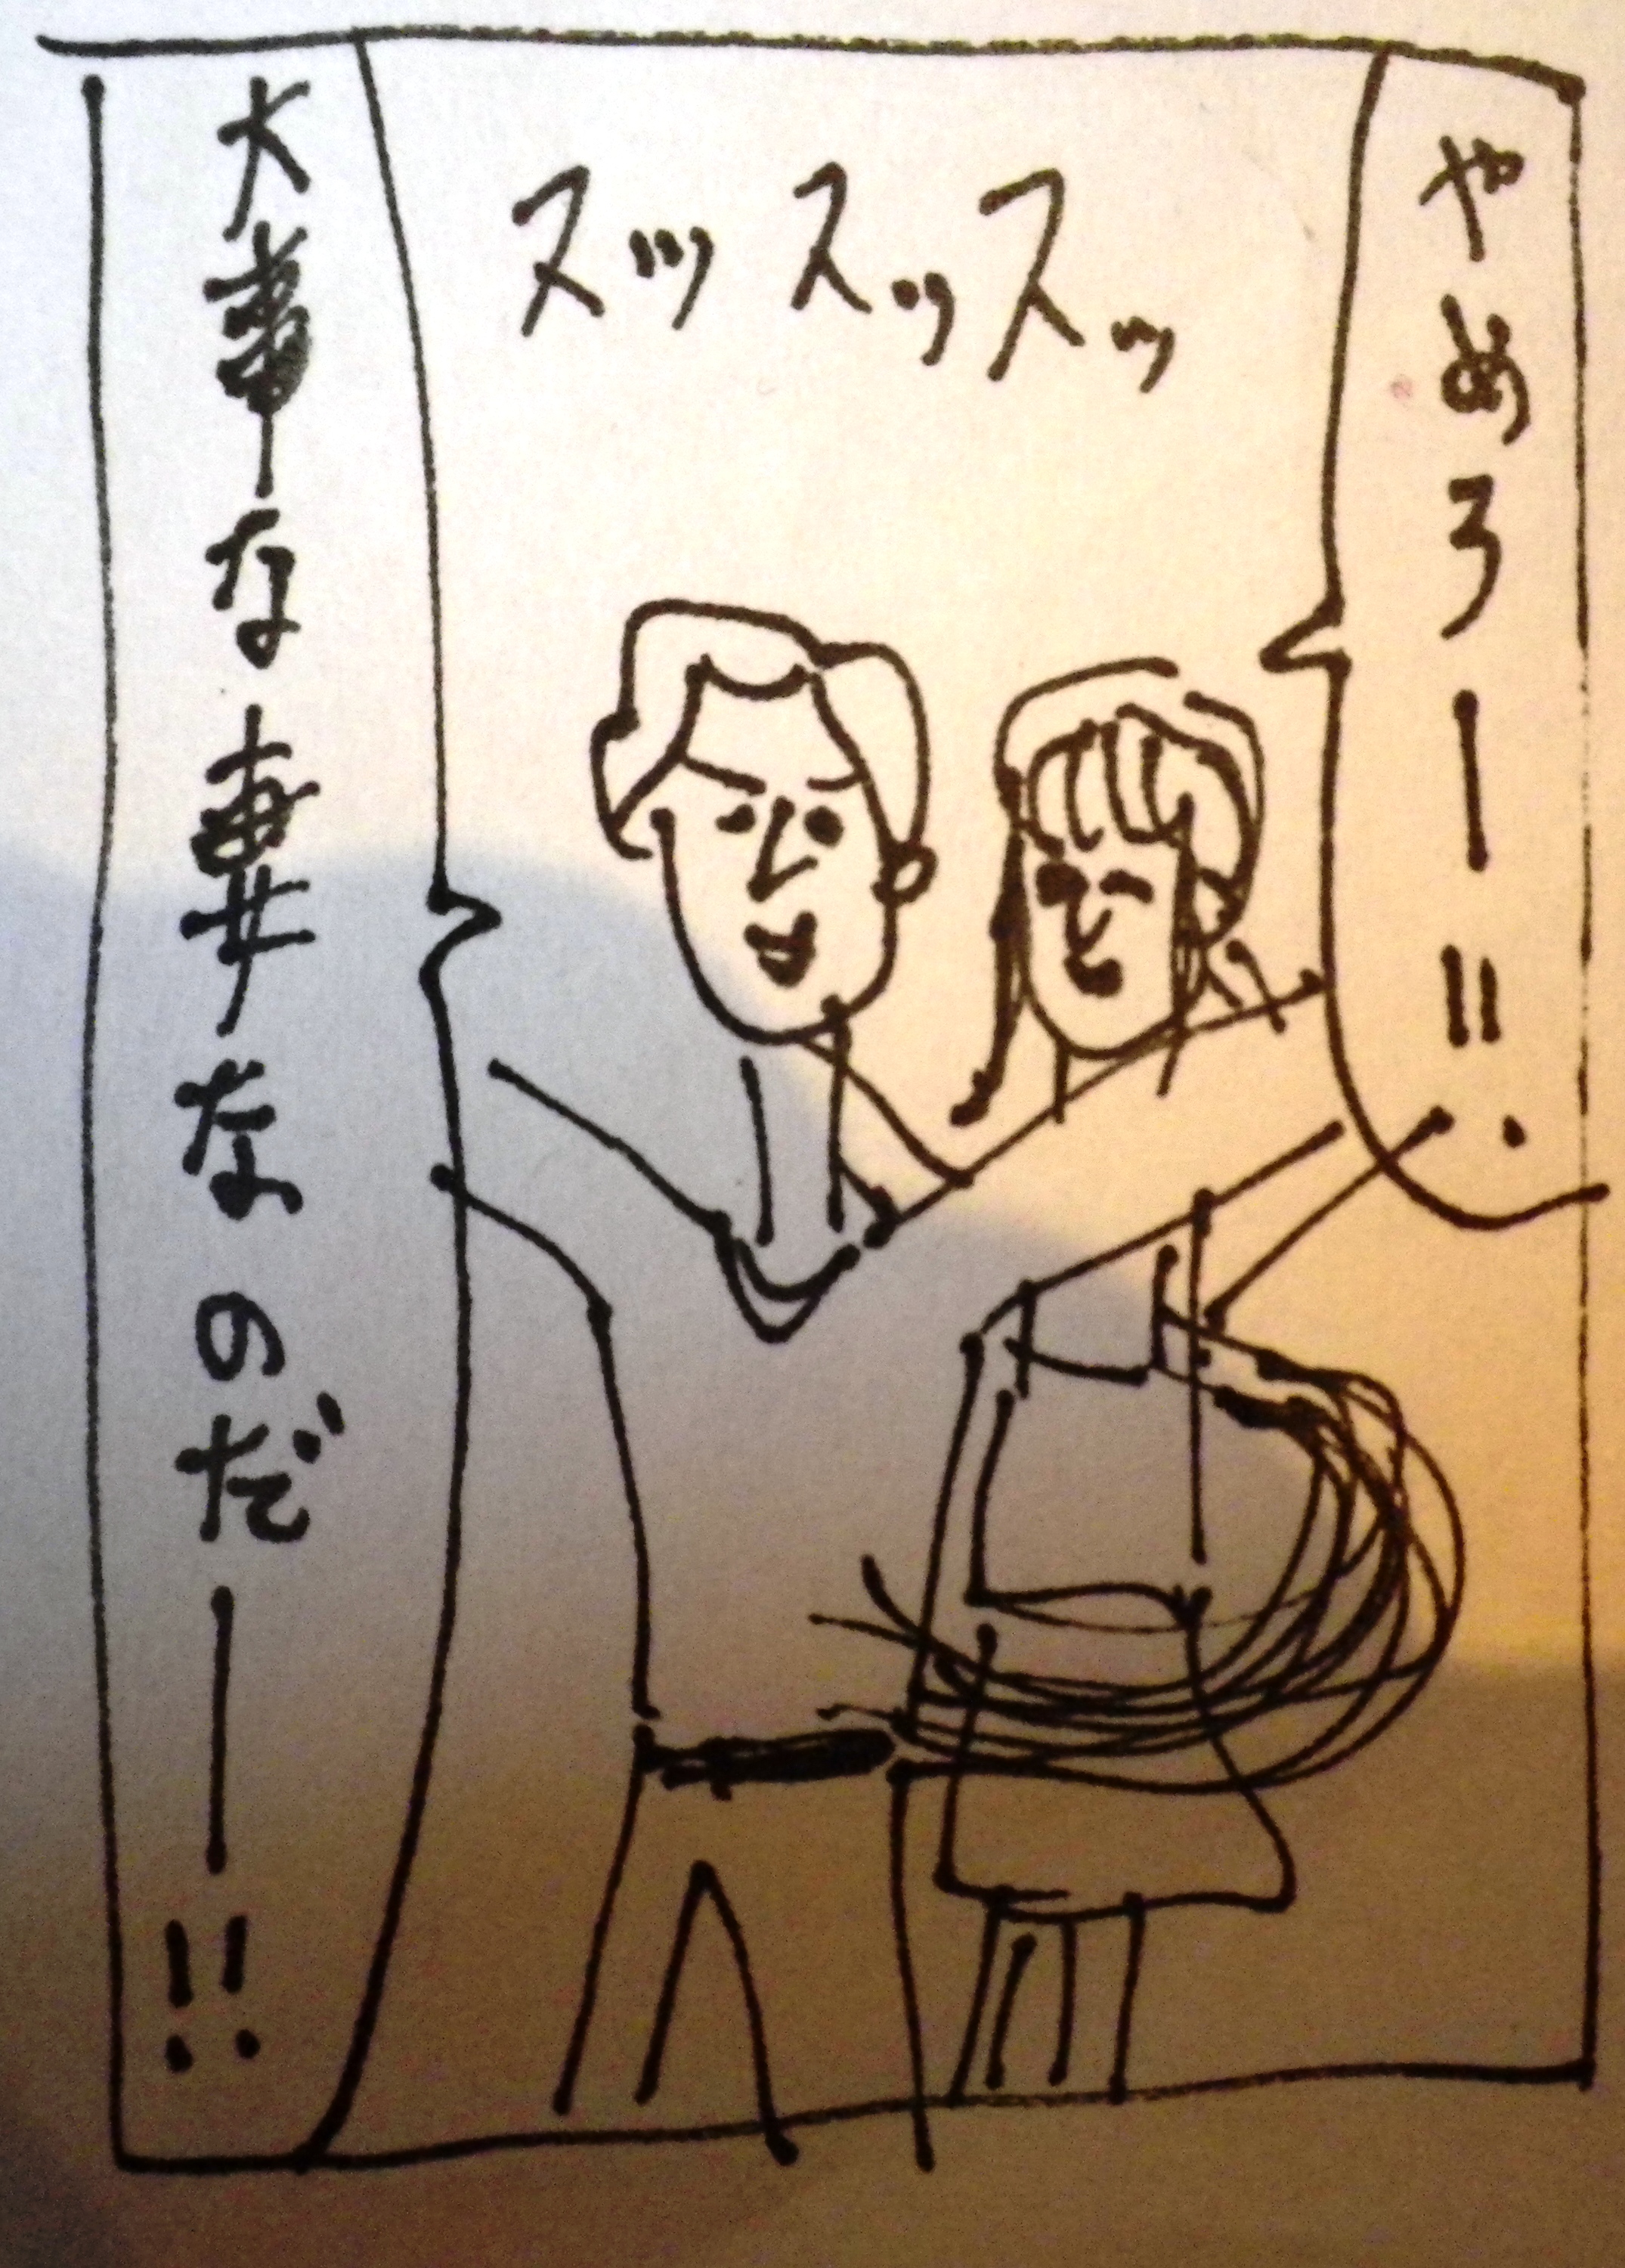 やめろー!!
スッスッスッ
大事な妻なのだー!!